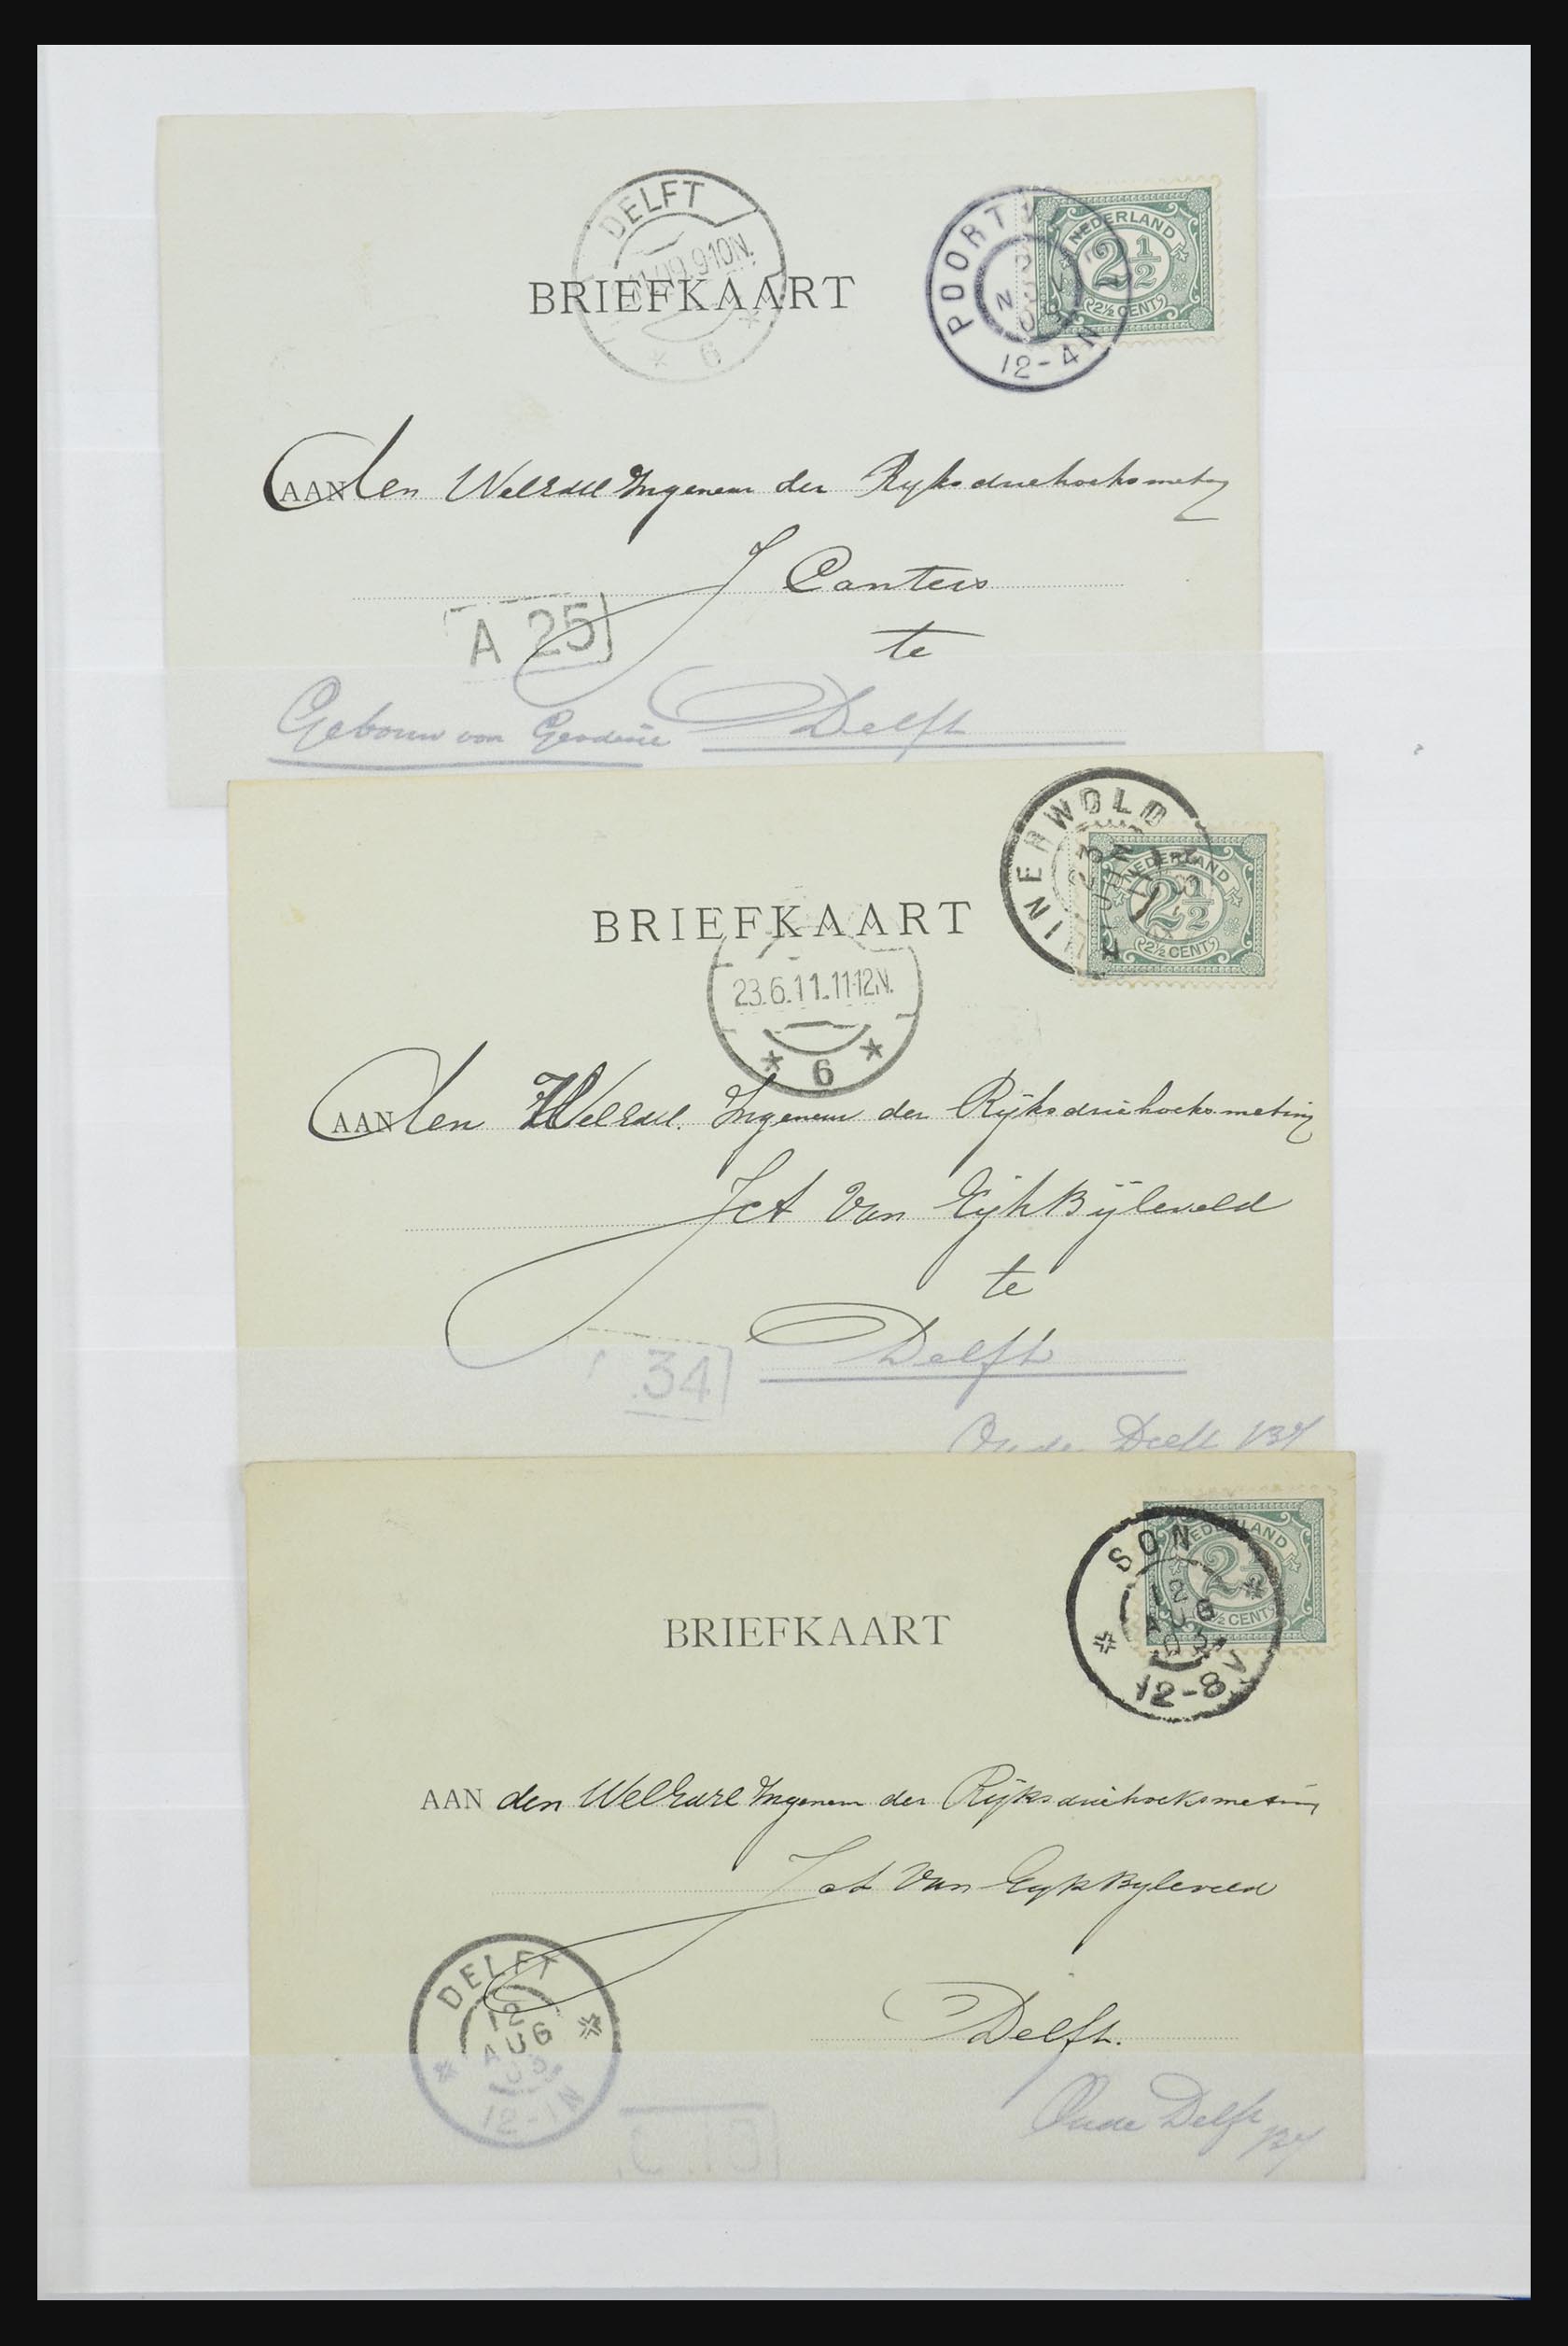 DELFT
9-10N.
* 6 *
POORTV
2 NOV 09
12-4N
NEDERLAND
2 1/2
2½ CENT
BRIEFKAART
AAN den WelEdel Ingenieur der Ryksdriehoeksmeting
J Canters
A 25
te
Gebouw voor Geodesie Delft
INERWOLD
23 JUN
NEDERLAND
2 1/2
2½ CENT
BRIEFKAART
23.6.11.11-12N.
* 6 *
AAN den WelEdel. Ingenieur der Rijksdriehoeksmeting
JCA Van Eijk Bijleveld
te
34
Delft
Oude Delft 137
SON
12 AUG 03
12-8V
NEDERLAND
2 1/2
½ CENT
BRIEFKAART
AAN den WelEdel Ingenieur der Rijksdriehoeksmeting
JCA Van Eyk Byleveld
DELFT
12 AUG 03
12-1N
Delft.
Oude Delft
137